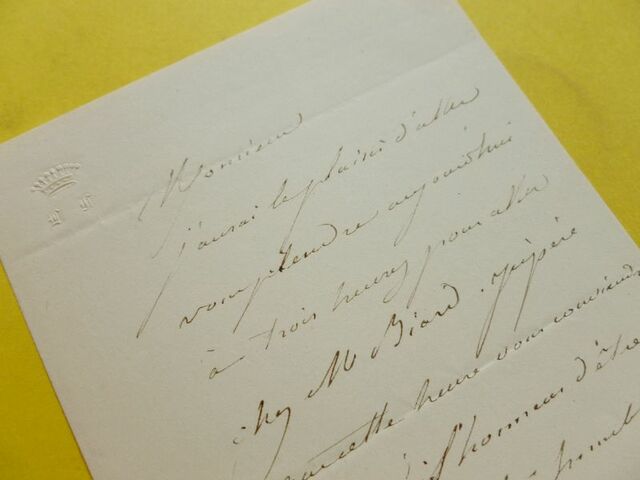 Monsieur
j'aurai le plaisir d'aller
vous prendre aujourd'hui
à trois heures pour aller
chez Mr Biard. j'espère
que cette heure vous conviendra
l'honneur d'être